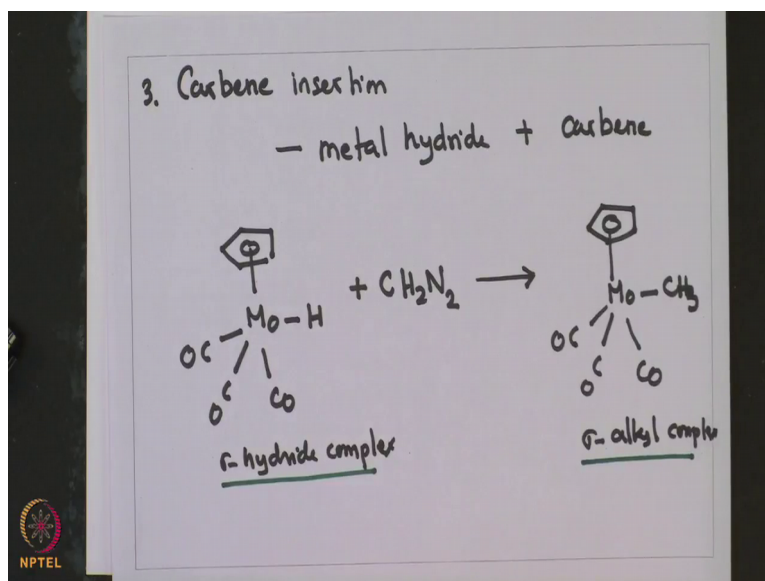 3. Carbene insertion
– metal hydride + carbene
Mo–H + CH₂N₂ → Mo–CH₃
OC OC CO OC OC CO
σ-hydride complex σ-alkyl complex
NPTEL